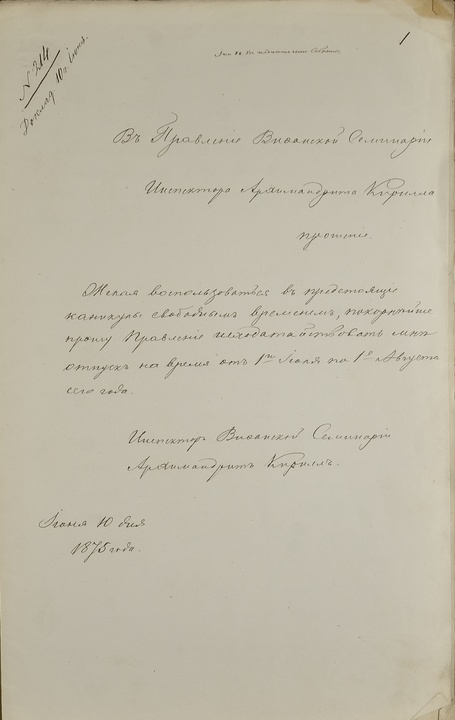 1
№ 214
Доклад 10го Іюня.
Въ Правленіе Виѳанской Семинаріи
Инспектора Архимандрита Кирилла
прошеніе.
Желая воспользоваться въ предстоящіе
каникулы свободнымъ временемъ, покорнѣйше
прошу Правленіе исходатайствовать мнѣ
отпускъ на время отъ 1го Іюля по 1е Августа
сего года.
Инспекторъ Виѳанской Семинаріи
Архимандритъ Кириллъ.
Іюня 10 дня
1875 года.